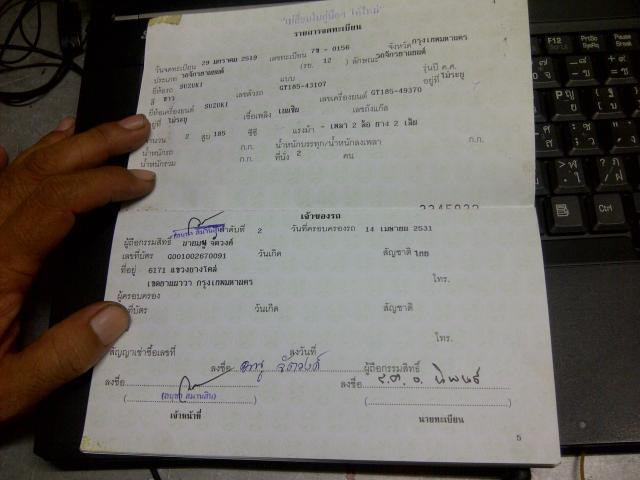 "เปลี่ยนใบคู่มือฯ ให้ใหม่"
4
รายการจดทะเบียน
วันจดทะเบียน 29 มกราคม 2519 เลขทะเบียน 7ข - 0156 จังหวัด กรุงเทพมหานคร
ประเภท รถจักรยานยนต์ (รย. 12 ) ลักษณะ รถจักรยานยนต์
ยี่ห้อรถ SUZUKI แบบ รุ่นปี ค.ศ.
สี ขาว เลขตัวรถ GT185-43107 อยู่ที่ ไม่ระบุ
ยี่ห้อเครื่องยนต์ SUZUKI เลขเครื่องยนต์ GT185-49370
อยู่ที่ ไม่ระบุ เชื้อเพลิง เบนซิน เลขถังแก๊ส
จำนวน 2 สูบ 185 ซีซี แรงม้า - เพลา 2 ล้อ ยาง 2 เส้น
น้ำหนักรถ ก.ก. น้ำหนักบรรทุก/น้ำหนักลงเพลา ก.ก.
น้ำหนักรวม ก.ก. ที่นั่ง 2 คน
เจ้าของรถ
ลำดับที่ 2 วันที่ครอบครองรถ 14 เมษายน 2531
ผู้ถือกรรมสิทธิ์ นายมนู จัดวงค์
เลขที่บัตร Q001002670091 วันเกิด สัญชาติ ไทย
ที่อยู่ 6171 แขวงยางโคล่
เขตยานนาวา กรุงเทพมหานคร โทร.
ผู้ครอบครอง
ที่บัตร วันเกิด สัญชาติ
โทร.
สัญญาเช่าซื้อเลขที่ ลงวันที่
ลงชื่อ มนู จัดวงค์ ผู้ถือกรรมสิทธิ์
ลงชื่อ ลงชื่อ
เจ้าหน้าที่ นายทะเบียน
5